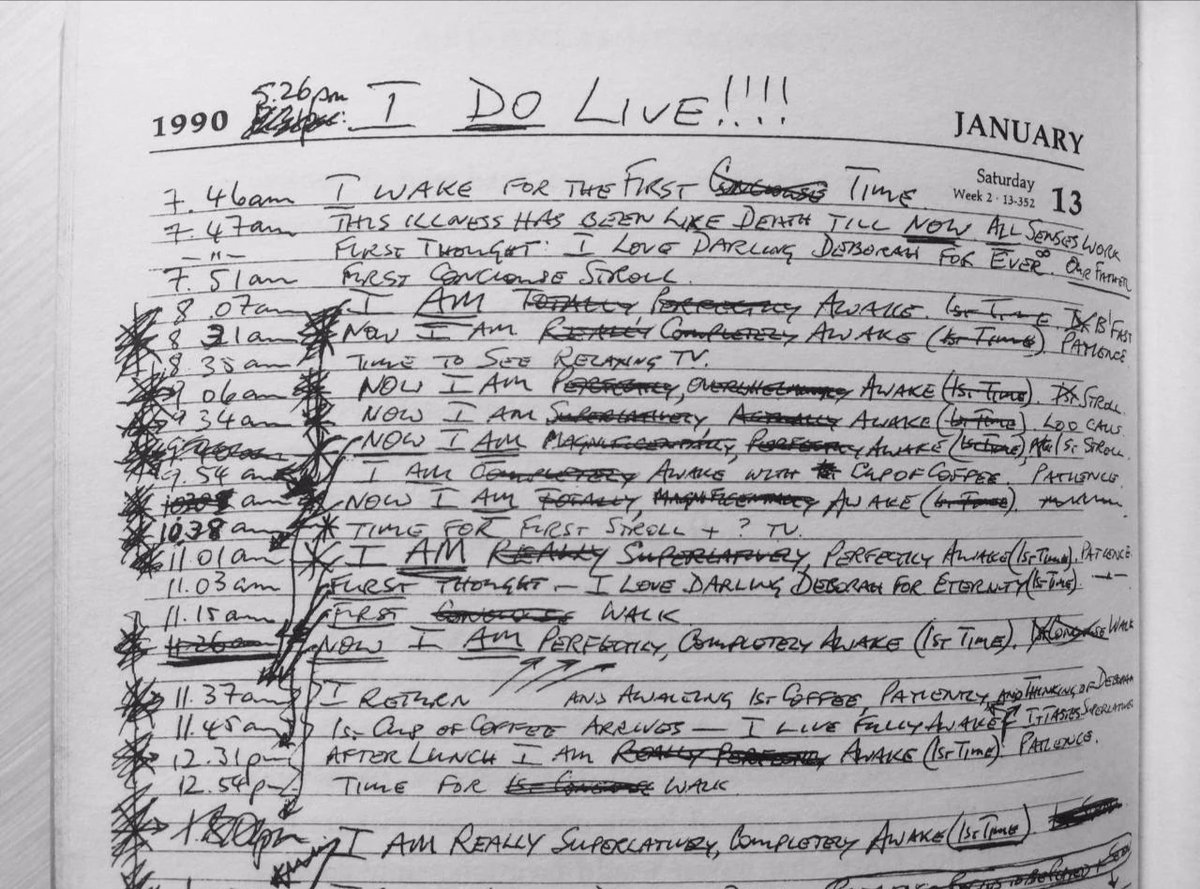 5.26pm I DO LIVE!!!!
1990 JANUARY
Saturday
Week 2 · 13-352 13
7.46am I WAKE FOR THE FIRST CONCIOUSE TIME.
7.47am THIS ILLNESS HAS BEEN LIKE DEATH TILL NOW ALL SENSES WORK
-"- FIRST THOUGHT: I LOVE DARLING DEBORAH FOR EVER. OUR FATHER
7.51am FIRST CONCIOUSE STROLL.
8 07am I AM TOTALLY, PERFECTLY AWAKE. 1ST TIME. B'FAST
8 31am NOW I AM REALLY COMPLETELY AWAKE (1ST TIME) PATIENCE
8.35am TIME TO SEE RELAXING TV.
9 06am NOW I AM PERFECTLY, OVERWHELMINGLY AWAKE (1ST TIME). 1ST STROLL.
9 34am NOW I AM SUPERLATIVELY, ACTUALLY AWAKE (1ST TIME) LOO CALL.
NOW I AM MAGNIFICENTLY, PERFECTLY AWAKE (1ST TIME), 1ST STROLL.
9.54am I AM COMPLETELY AWAKE WITH CUP OF COFFEE. PATIENCE.
am NOW I AM TOTALLY, MAGNIFICENTALLY AWAKE (1ST TIME).
10.38am TIME FOR FIRST STROLL + ? TV.
11.01am I AM REALLY SUPERLATIVELY, PERFECTLY AWAKE (1ST TIME). PATIENCE.
11.03am FIRST THOUGHT - I LOVE DARLING DEBORAH FOR ETERNITY (1ST TIME).
11.15am FIRST CONCIOUSE WALK
11.26am NOW I AM PERFECTLY, COMPLETELY AWAKE (1ST TIME). 1ST CONCIOUSE WALK
11.37am I RETURN AND AWAITING 1ST COFFEE, PATIENTLY AND THINKING OF DEBORAH
11.45am 1ST CUP OF COFFEE ARRIVES — I LIVE FULLY AWAKE IT TASTES SUPERLATIVE
12.31pm AFTER LUNCH I AM REALLY PERFECTLY AWAKE (1ST TIME) PATIENCE.
12.54pm TIME FOR 1ST CONCIOUSE WALK
I AM REALLY SUPERLATIVELY, COMPLETELY AWAKE (1ST TIME).